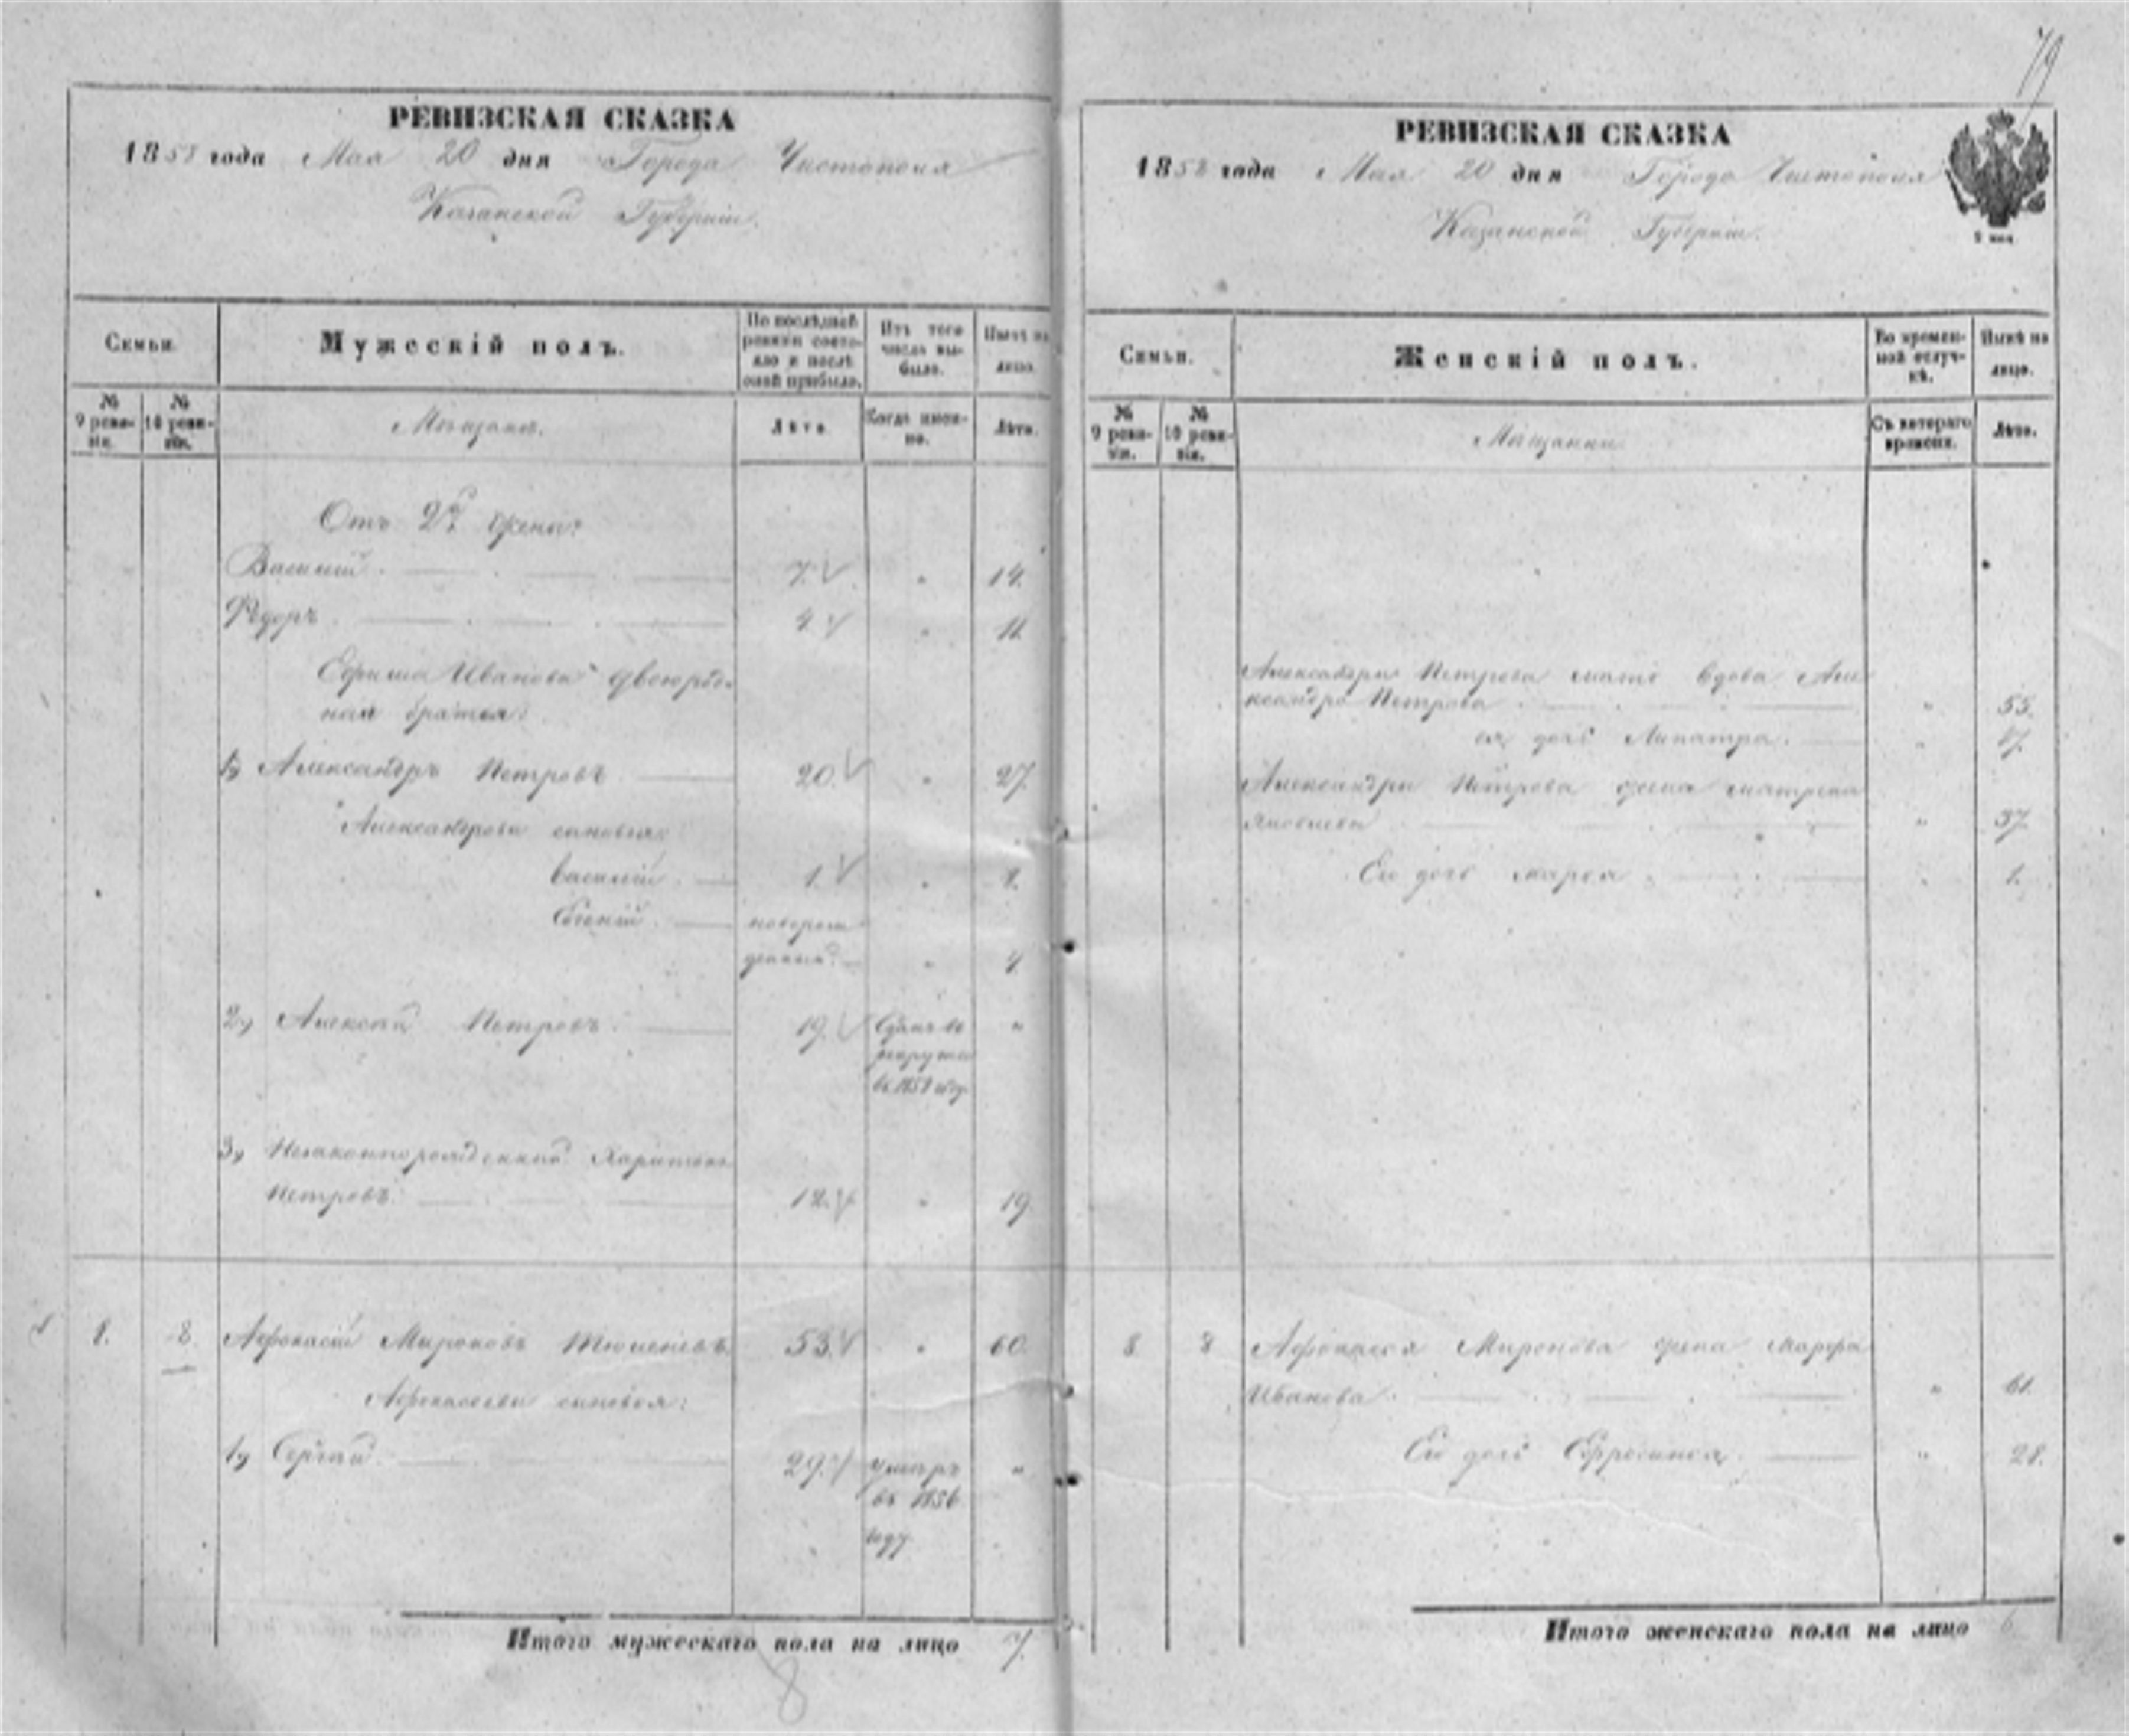 79
РЕВИЗСКАЯ СКАЗКА
1858 года Мая 20 дня Города Чистополя
Казанской Губерніи.
Семьи.
Мужескій полъ.
По послѣдней ревизіи состояло и послѣ оной прибыло.
Изъ того числа выбыло.
Нынѣ на лицо.
№ 9 ревизіи.
№ 10 ревизіи.
Мѣщане.
Лѣта.
Когда именно.
Лѣта.
Отъ 2й жены:
Василій 7. " 14.
Ѳедоръ 4. " 11.
Ефима Иванова двоюрод-
ныя братья:
1) Александръ Петровъ 20. " 27.
Александровы сыновья:
Василій 1. " 8.
Евгеній новорож-
денный. " 4.
2) Алексѣй Петровъ. 19. Сданъ въ "
рекруты
въ 1851 году.
3) Незаконнорожденный Харитонъ
Петровъ. 12. " 19.
8. 8. Афонасій Мироновъ Тюленевъ. 53. " 60.
Афонасьевы сыновья:
1) Сергѣй. 29. умеръ "
въ 1856
году
Итого мужескаго пола на лицо 7.
8
РЕВИЗСКАЯ СКАЗКА
1858 года Мая 20 дня Города Чистополя
Казанской Губерніи.
2 коп.
Семьи.
Женскій полъ.
Во временной отлучкѣ.
Нынѣ на лицо.
№ 9 ревизіи.
№ 10 ревизіи.
Мѣщанки
Съ котораго времени.
Лѣта.
Александра Петрова мать вдова Але-
ксандра Петрова " 55.
ея дочь "
Александра Петрова жена Матрена
Яковлева " 37.
Его дочь Марья " 1.
8 8 Афонасья Миронова жена Марфа
Иванова. " 61.
Его дочь Ефросинья. " 28.
Итого женскаго пола на лицо 6